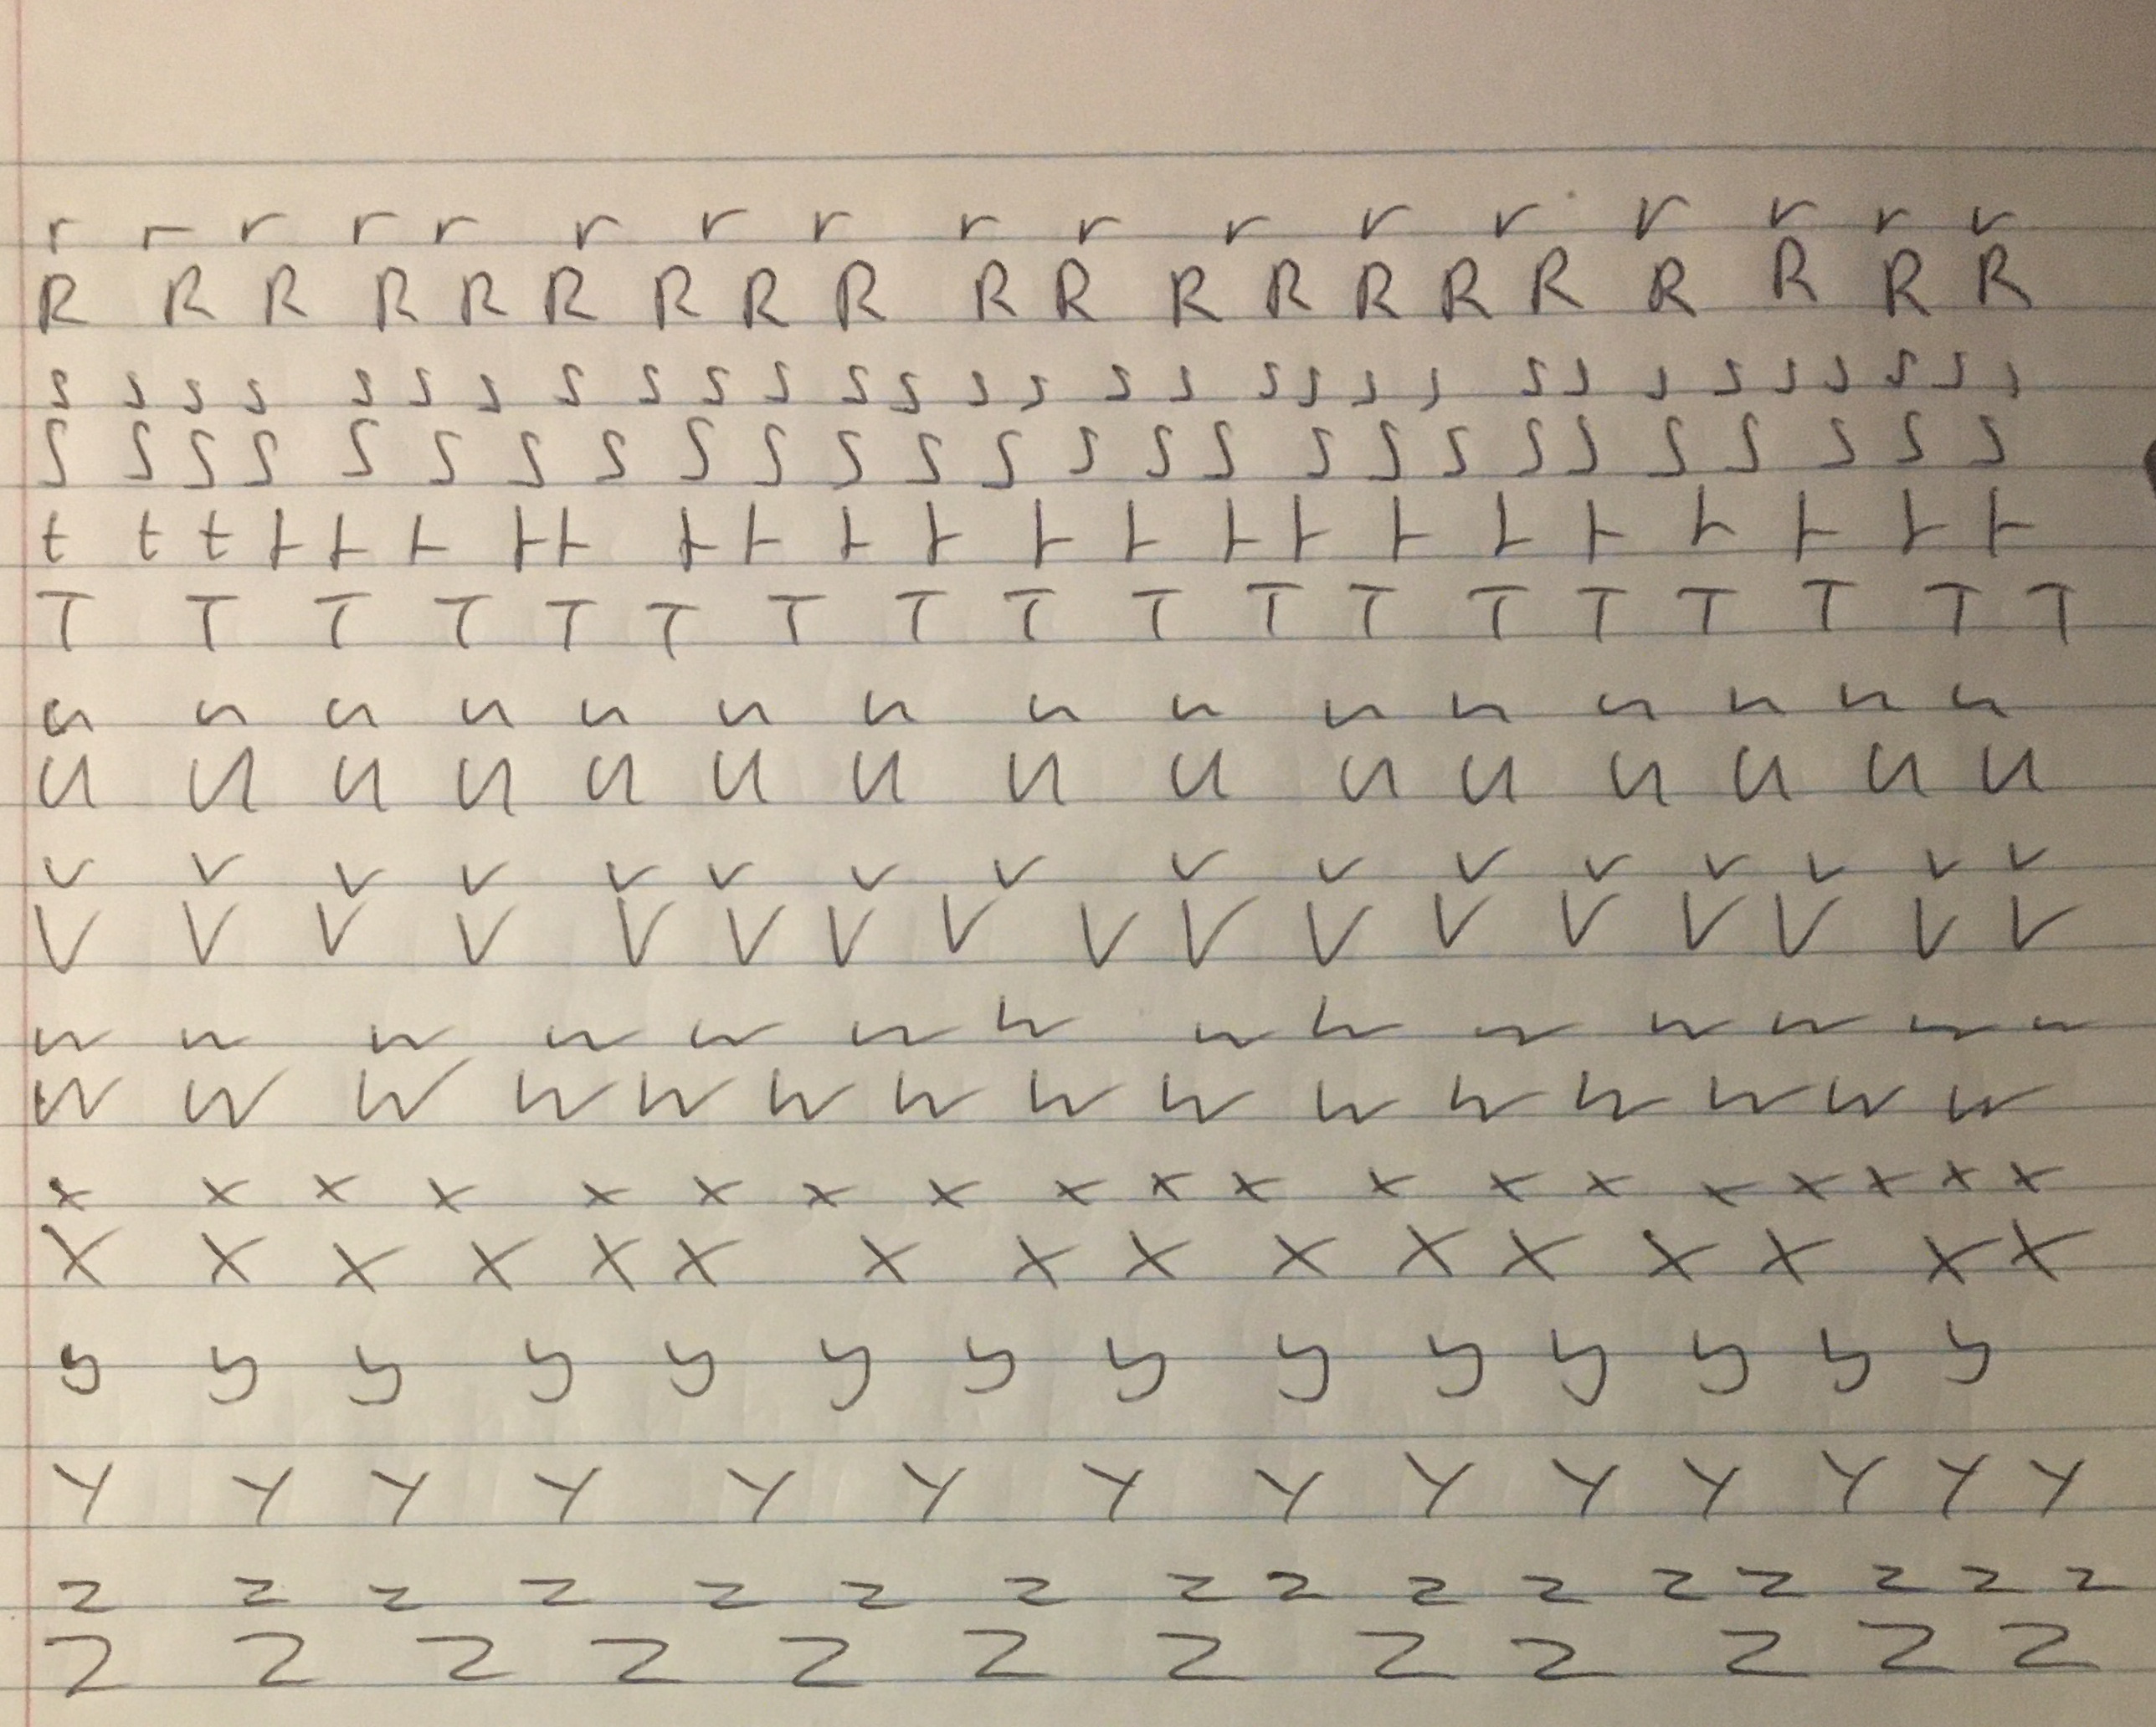 r r r r r r r r r r r r r r r r r
R R R R R R R R R R R R R R R R R R R R
s s s s s s s s s s s s s s s s s s s s s s s s s s s s s s
S S S S S S S S S S S S S S S S S S S S S S S S S S
t t t t t t t t t t t t t t t t t t t t t t t
T T T T T T T T T T T T T T T T T T
u u u u u u u u u u u u u u u
U U U U U U U U U U U U U U U
v v v v v v v v v v v v v v v v
V V V V V V V V V V V V V V V V V
w w w w w w w w w w w w w w
W W W W W W W W W W W W W W W
x x x x x x x x x x x x x x x x x x x
X X X X X X X X X X X X X X X X
y y y y y y y y y y y y y y
Y Y Y Y Y Y Y Y Y Y Y Y Y Y
z z z z z z z z z z z z z z z z
Z Z Z Z Z Z Z Z Z Z Z Z